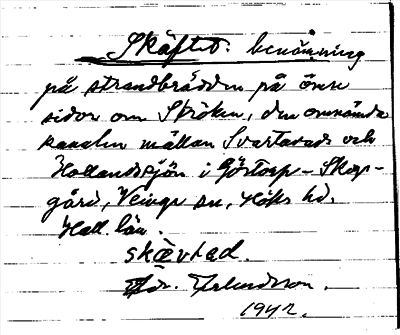 Skäftet. benämning
på strandbrädden på övre
sidon om Ströken, den omnämda
kanalen mällan Svartavads och
Hollandssjön i Göstorp - Skog-
gård, Veinge sn, Höks hd.
Hall. län.
skævtad.
Erlandsson.
1942.